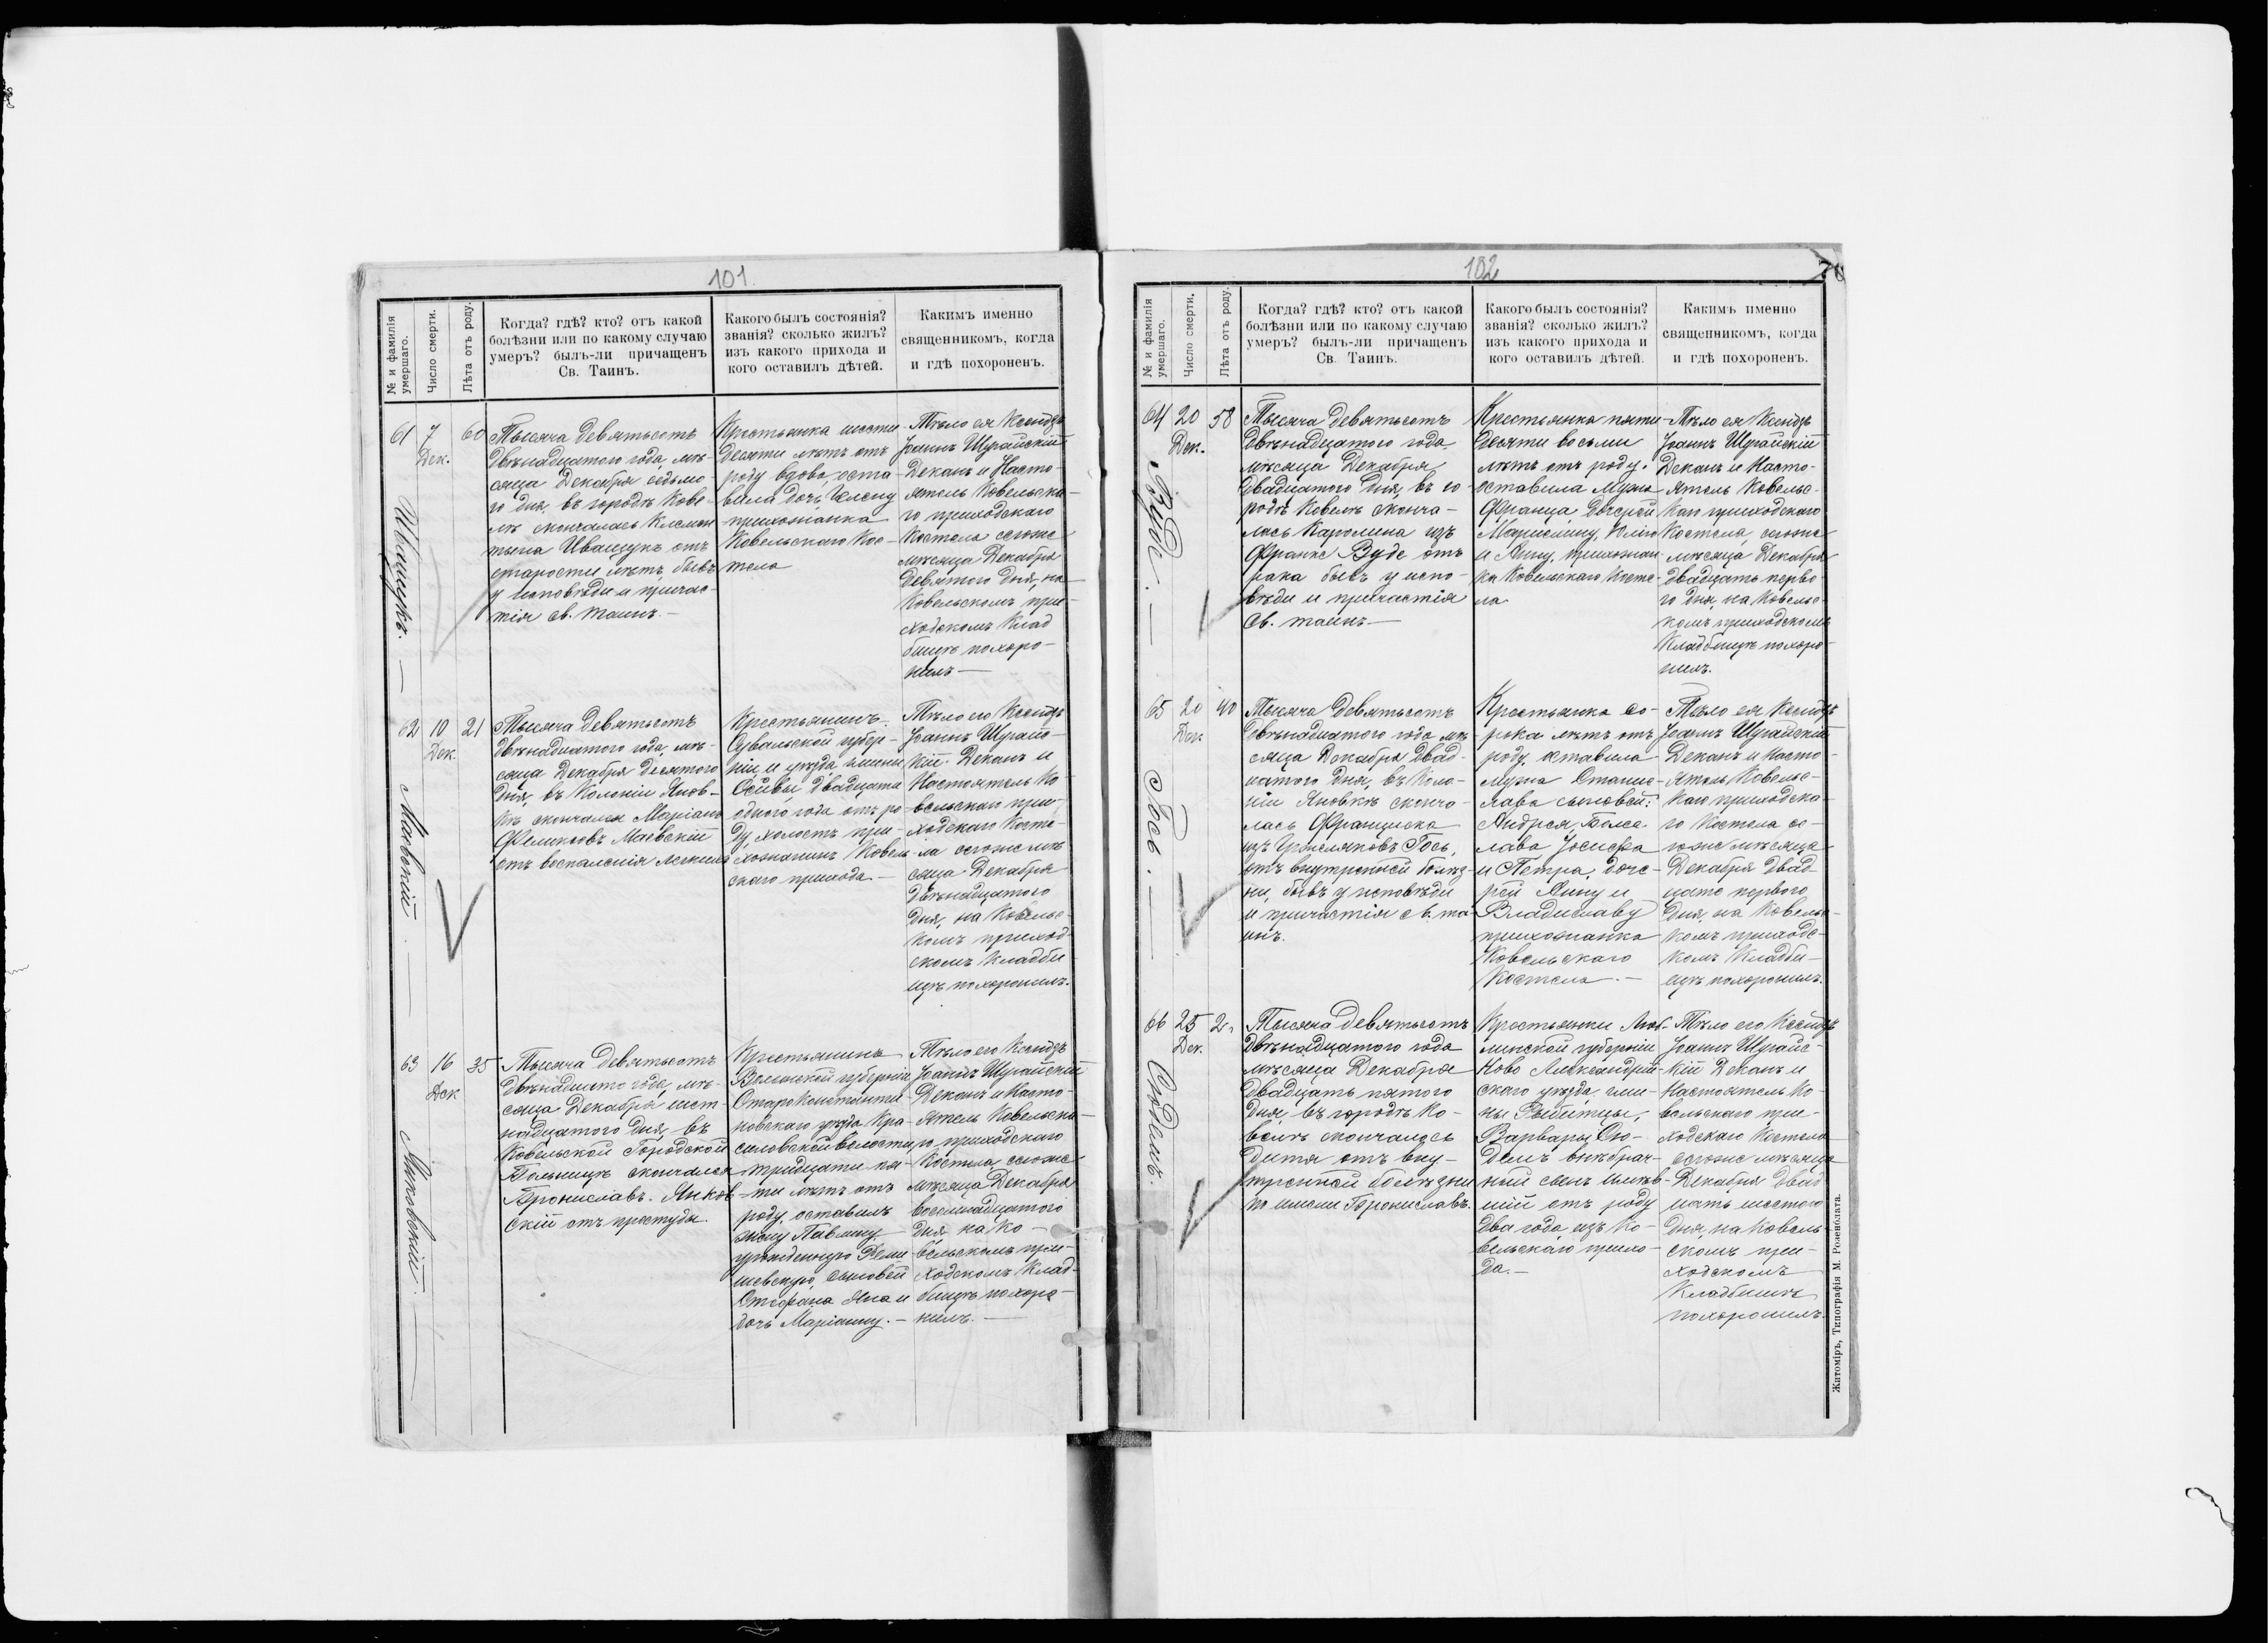 101
№ и фамилія умершаго.
Число смерти.
Лѣта отъ роду.
Когда? гдѣ? кто? отъ какой
болѣзни или по какому случаю
умеръ? былъ-ли причащенъ
Св. Таинъ.
Какого былъ состоянія?
званія? сколько жилъ?
изъ какого прихода и
кого оставилъ дѣтей.
Какимъ именно
священникомъ, когда
и гдѣ похороненъ.
61
7
Дек.
60
Иванецукъ. —
Тысяча девятьсотъ
двѣнадцатого года, мѣ-
сяца Декабря седьмо-
го дня, въ городѣ Кове-
лѣ скончалась Клемен
тына Иванецукъ отъ
старости лѣтъ, бывъ
у исповѣди и причас-
тія св. таинъ. —
Крестьянка шести
десяти лѣтъ отъ
роду вдова, оста-
вила дочь Елену
прихожанка
Ковельскаго Кос-
тела
Тѣло ея Ксендзъ
Іоаннъ Шурайскій
Деканъ и Насто-
ятель Ковельска-
го приходскаго
Костела сегоже
мѣсяца Декабря
девятого дня, на
Ковельскомъ при-
ходскомъ Клад
бищѣ похоро-
нилъ —
62
10
Дек.
21
Маевскій. —
Тысяча девятьсотъ
двѣнадцатого года, мѣ-
сяца Декабря десятого
дня, въ Колоніи Янов-
кѣ скончался Маріанъ
Феликсовъ Маевскій
отъ воспаленія легкихъ
Крестьянинъ
Сувалской губер-
ніи и уѣзда гмины
двадцати
одного года отъ ро-
ду, холостъ при-
хожанинъ Ковель-
скаго прихода. —
Тѣло его Ксендзъ
Іоаннъ Шурайс-
кій Деканъ и
Настоятель Ко-
вельскаго при-
ходскаго Косте-
ла сегоже мѣ
сяца Декабря
двѣнадцатого
дня, на Ковельс-
комъ приход-
скомъ Кладби-
щѣ похоронилъ.
63
16
Дек
35
Янковскій. —
Тысяча девятьсотъ
двѣнадцато года, мѣ-
сяца Декабря шест-
надцатого дня, въ
Ковельской Городской
Больницѣ скончался
Брониславъ Янков-
скій отъ простуды.
Крестьянинъ
Волынской губерніи
Староконстанти-
новскаго уѣзда Кра-
силовской волости,
тридцати пя-
ти лѣтъ отъ
роду, оставилъ
жену Павлину
урожденную
сыновей
Стефана Яна и
дочь Маріанну. —
Тѣло его Ксендзъ
Іоаннъ Шурайскій
Деканъ и Насто-
ятель Ковельска-
го приходскаго
Костела сегоже
мѣсяца Декабря
восемнадцатого
дня на Ко-
вельскомъ при-
ходскомъ Клад-
бищѣ похоро-
нилъ. —
102
№ и фамилія умершаго.
Число смерти.
Лѣта отъ роду.
Когда? гдѣ? кто? отъ какой
болѣзни или по какому случаю
умеръ? былъ-ли причащенъ
Св. Таинъ.
Какого былъ состоянія?
званія? сколько жилъ?
изъ какого прихода и
кого оставилъ дѣтей.
Какимъ именно
священникомъ, когда
и гдѣ похороненъ.
64
20
Дек.
58
Вуде. —
Тысяча девятьсотъ
двѣнадцатого года
мѣсяца Декабря
двадцатого дня, въ го-
родѣ Ковелѣ сконча-
лась Каролина изъ
Франке Вуде отъ
рака бывъ у испо-
вѣди и причастія
св. таинъ —
Крестьянка пяти-
десяти восьми
лѣтъ отъ роду.
оставила мужа
Франца, дочерей
Юлію
и Анну, прихожан-
ка Ковельскаго Косте-
ла
Тѣло ея Ксендзъ
Іоаннъ Шурайскій
Деканъ и Насто-
ятель Ковельс-
каго приходскаго
Костела, сегоже
мѣсяца Декабря
двадцать перво-
го дня, на Ковельс-
комъ приходскомъ
Кладбищѣ похоро-
нилъ.
65
20
Дек
40
Гось. —
Тысяча девятьсотъ
двѣнадцатого года мѣ-
сяца Декабря двад-
цатого дня, въ Коло-
ніи Яновкѣ сконча-
лась Франциска
изъ Гось,
отъ внутренней болѣз-
ни, бывъ у исповѣди
и причастія св. та-
инъ.
Крестьянка со-
рока лѣтъ отъ
роду, оставила
мужа Станис-
лава сыновей:
Андрея, Болес-
лава Іосифа
и Петра, доче-
рей Анну и
Владиславу
прихожанка
Ковельскаго
Костела. —
Тѣло ея Ксендзъ
Іоаннъ Шурайскій
Деканъ и Насто-
ятель Ковельс-
каго приходска-
го Костела се-
гоже мѣсяца
Декабря двад-
цать первого
дня, на Ковельс-
комъ приходс-
комъ Кладби-
щѣ похоронилъ.
66
25
Дек.
2
Сюдемъ.
Тысяча девятьсотъ
двѣнадцатого года
мѣсяца Декабря
двадцать пятого
дня, въ городѣ Ко-
велѣ скончалось
дитя отъ вну-
тренней болѣзни
по имени Брониславъ.
Крестьянки Люб-
линской губерніи
Ново Александрій-
скаго уѣзда, гми-
ны
Варвары Сю-
демъ внѣбрач-
ный сынъ имѣв-
шій отъ роду
два года, изъ Ко-
вельскаго прихо-
да. —
Тѣло его Ксендзъ
Іоаннъ Шурайс-
кій Деканъ и
Настоятель Ко-
вельскаго при-
ходскаго Костела
сегоже мѣсяца
Декабря двад
цать шестого
дня, на Ковель-
скомъ при-
ходскомъ
Кладбищѣ
похоронилъ.
Житоміръ, Типографія М. Розенблата.